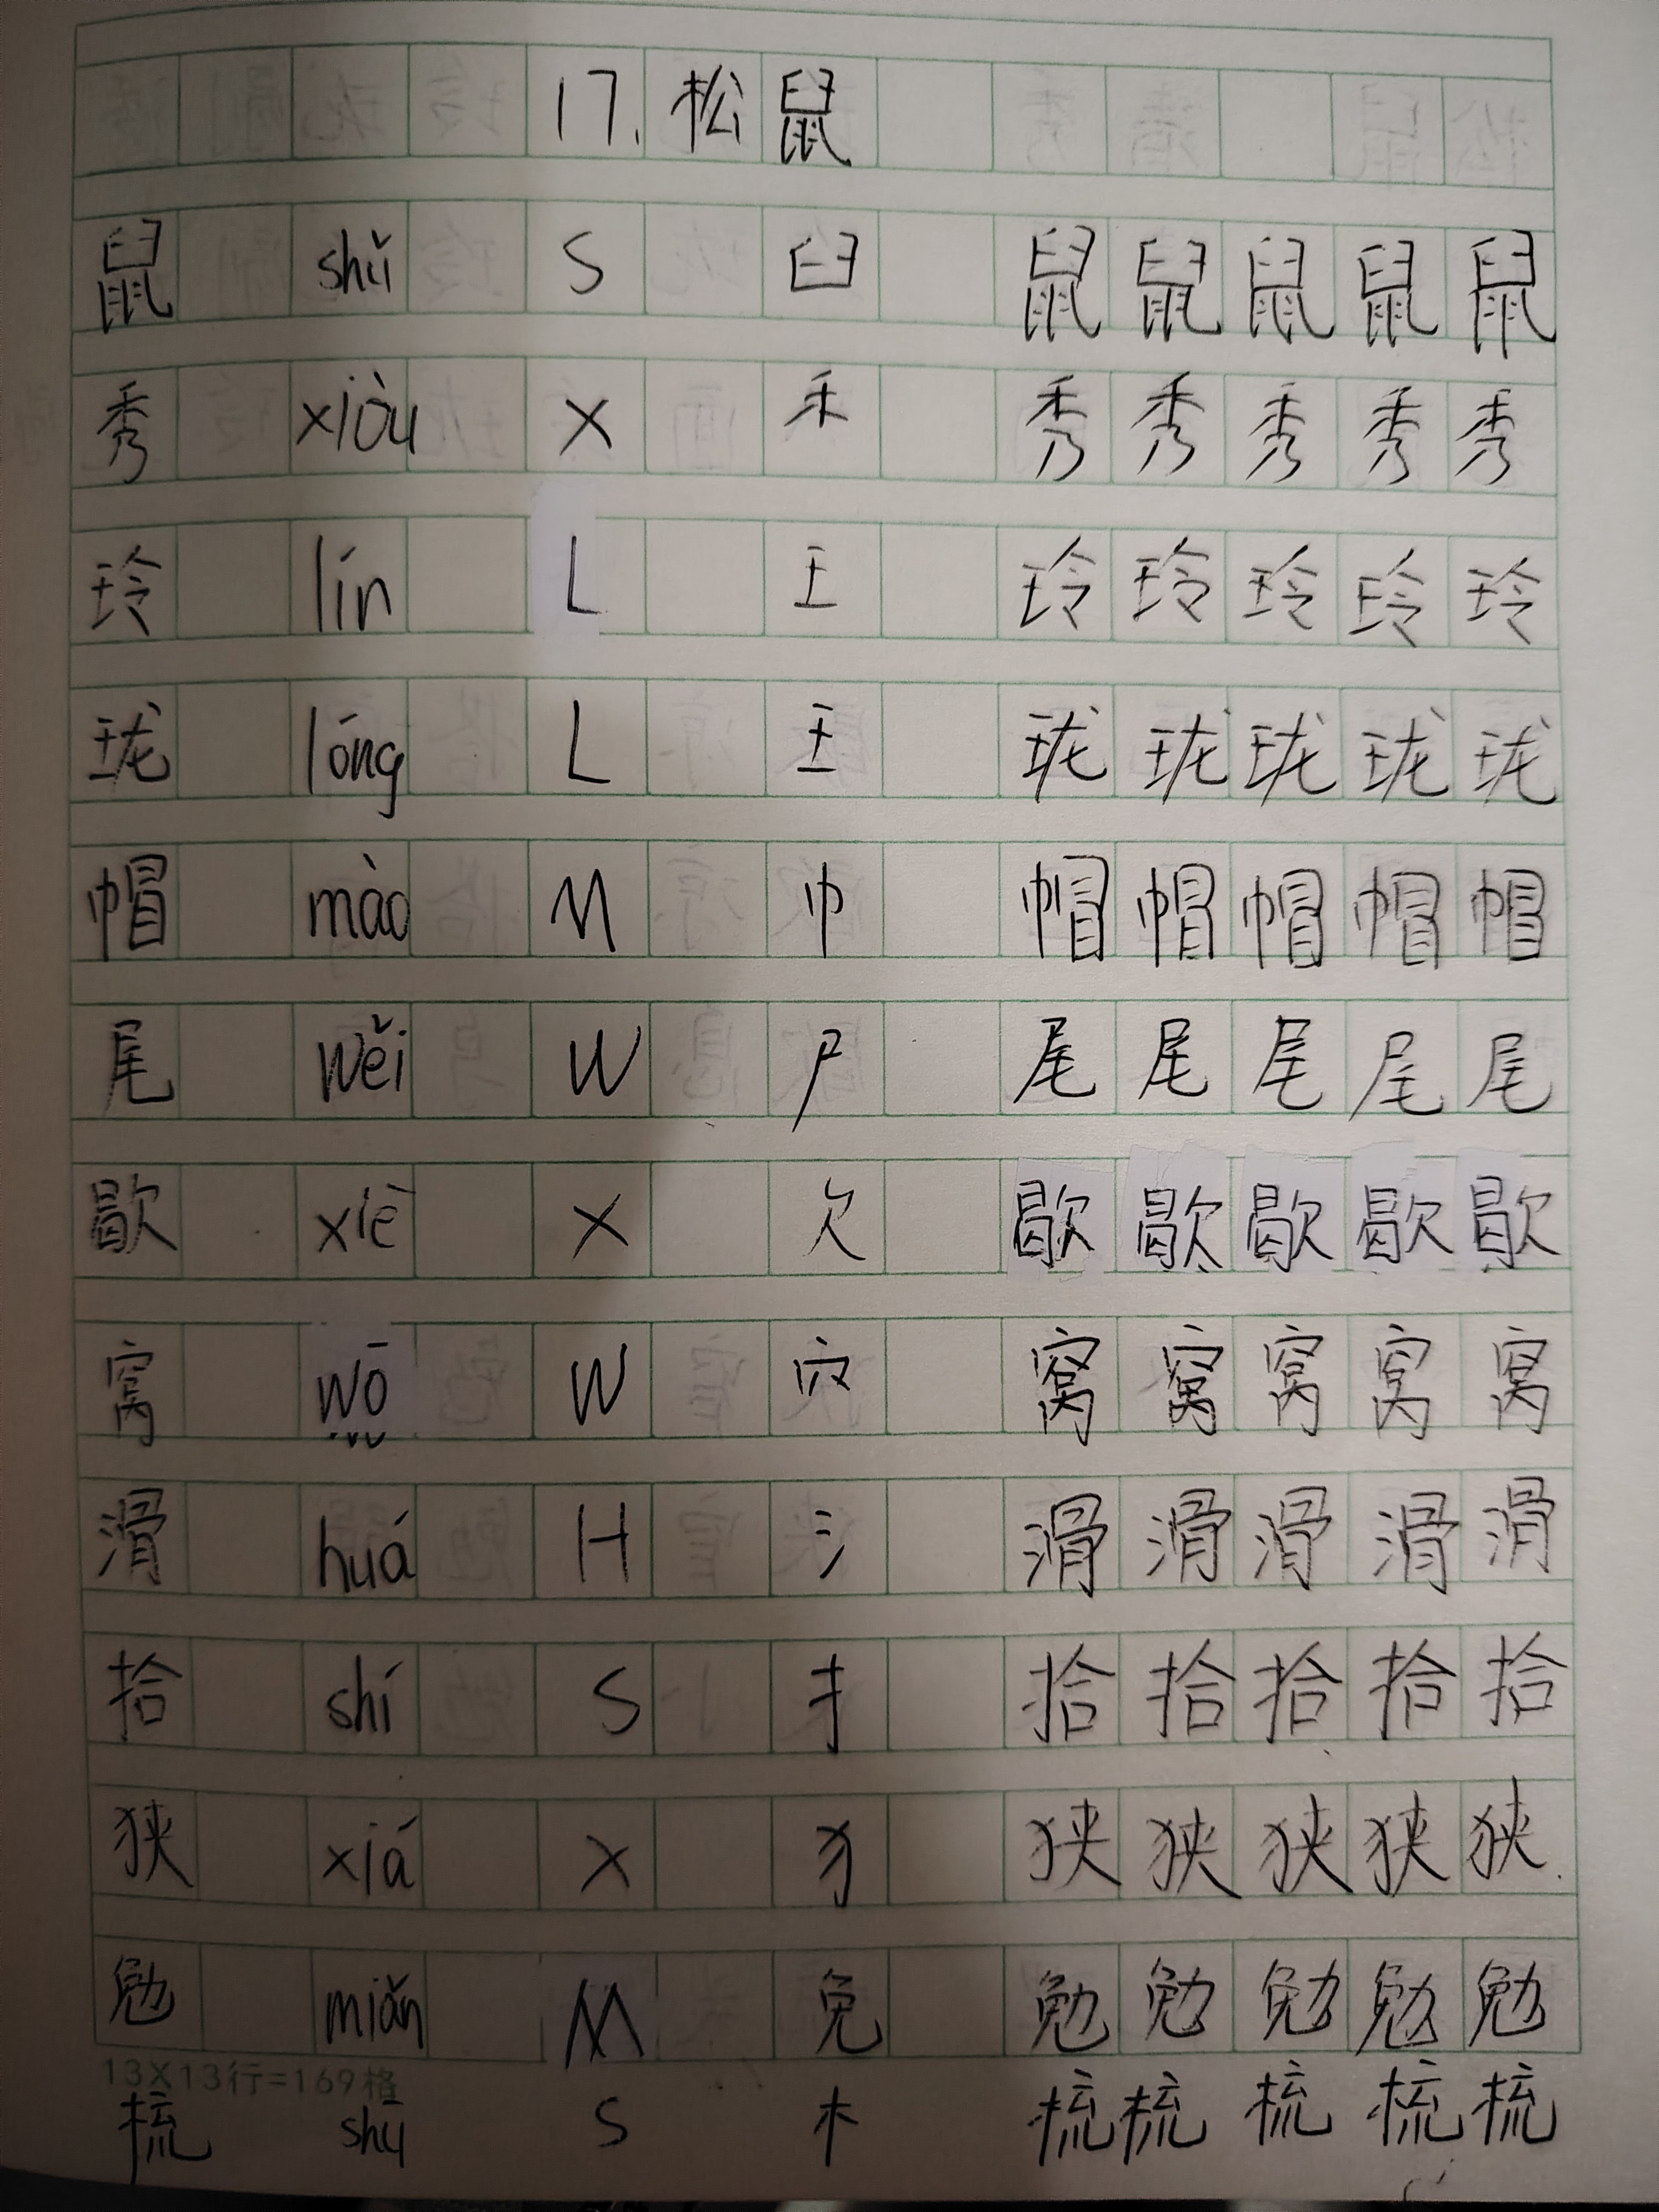 17. 松鼠
鼠 shǔ S 臼 鼠 鼠 鼠 鼠 鼠
秀 xiòu X 禾 秀 秀 秀 秀 秀
玲 lín L 王 玲 玲 玲 玲 玲
珑 lóng L 王 珑 珑 珑 珑 珑
帽 mào M 巾 帽 帽 帽 帽 帽
尾 wěi W 尸 尾 尾 尾 尾 尾
歇 xiè X 欠 歇 歇 歇 歇 歇
窝 wō W 穴 窝 窝 窝 窝 窝
滑 huá H 氵 滑 滑 滑 滑 滑
拾 shí S 扌 拾 拾 拾 拾 拾
狭 xiá X 犭 狭 狭 狭 狭 狭
勉 miǎn M 免 勉 勉 勉 勉 勉
13X13行=169格
梳 shu S 木 梳 梳 梳 梳 梳